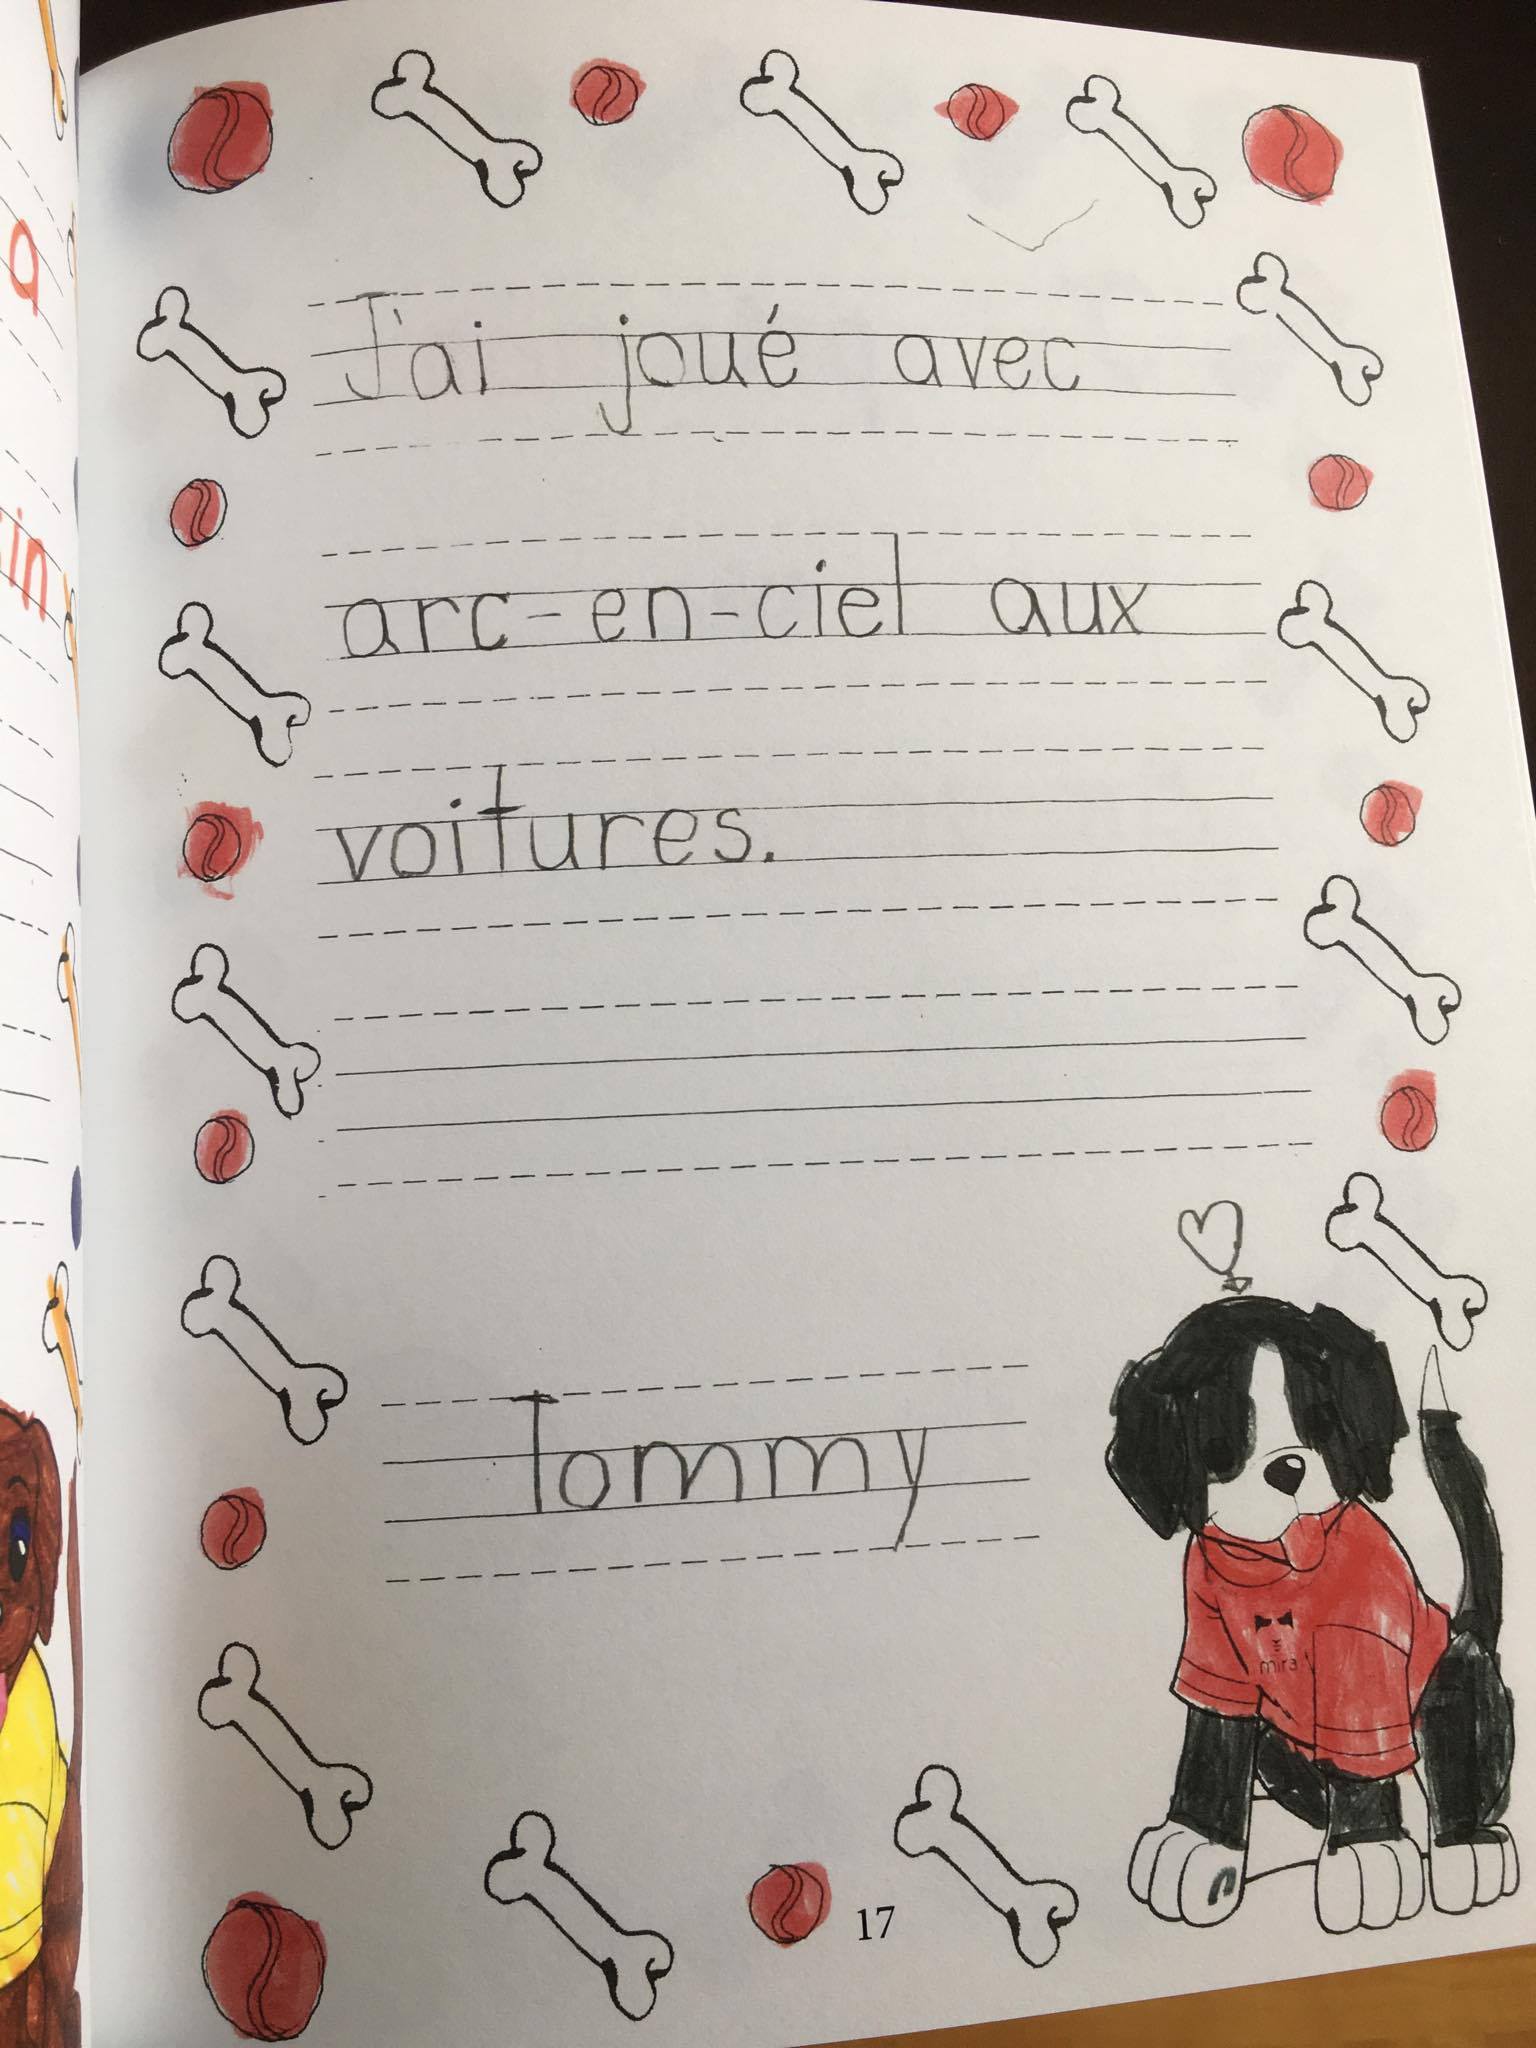 J'ai joué avec
arc-en-ciel aux
voitures.
Tommy
mira
17
a
in